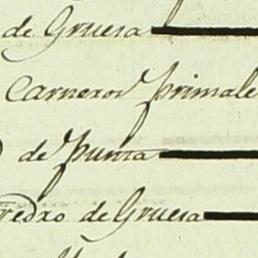 de Gruesa
Carneros primale
de Punta
Pedro de Gruesa